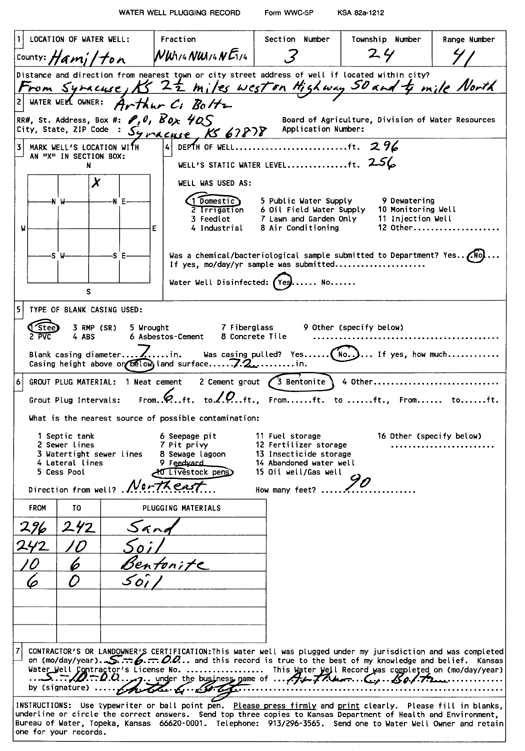 WATER WELL PLUGGING RECORD Form WWC-5P KSA 82a-1212
1 LOCATION OF WATER WELL: Fraction Section Number Township Number Range Number
County: Hamilton NW1/4 NW1/4 NE1/4 3 24 41
Distance and direction from nearest town or city street address of well if located within city?
From Syracuse, KS 2½ miles west on Highway 50 and ¼ mile North
2 WATER WELL OWNER: Arthur C. Boltz
RR#, St. Address, Box #: P.O. Box 405 Board of Agriculture, Division of Water Resources
City, State, ZIP Code : Syracuse KS 67878 Application Number:
3 MARK WELL'S LOCATION WITH AN "X" IN SECTION BOX:
N
X
N W N E
W E
S W S E
S
4 DEPTH OF WELL....................ft. 296
WELL'S STATIC WATER LEVEL............ft. 256
WELL WAS USED AS:
1 Domestic 5 Public Water Supply 9 Dewatering
2 Irrigation 6 Oil Field Water Supply 10 Monitoring Well
3 Feedlot 7 Lawn and Garden Only 11 Injection Well
4 Industrial 8 Air Conditioning 12 Other...............
Was a chemical/bacteriological sample submitted to Department? Yes...No...
If yes, mo/day/yr sample was submitted...................
Water Well Disinfected: Yes...... No......
5 TYPE OF BLANK CASING USED:
1 Steel 3 RMP (SR) 5 Wrought 7 Fiberglass 9 Other (specify below)
2 PVC 4 ABS 6 Asbestos-Cement 8 Concrete Tile ..............................
Blank casing diameter....7......in. Was casing pulled? Yes...... No...... If yes, how much...........
Casing height above or below land surface....72...........in.
6 GROUT PLUG MATERIAL: 1 Neat cement 2 Cement grout 3 Bentonite 4 Other...................
Grout Plug Intervals: From..6..ft. to..10..ft., From.....ft. to ......ft., From...... to ......ft.
What is the nearest source of possible contamination:
1 Septic tank 6 Seepage pit 11 Fuel storage 16 Other (specify below)
2 Sewer lines 7 Pit privy 12 Fertilizer storage ....................
3 Watertight sewer lines 8 Sewage lagoon 13 Insecticide storage
4 Lateral lines 9 Feedyard 14 Abandoned water well
5 Cess Pool 10 Livestock pens 15 Oil well/Gas well
Direction from well? ..Northeast...... How many feet? ....90..............
FROM TO PLUGGING MATERIALS
296 242 Sand
242 10 Soil
10 6 Bentonite
6 0 Soil
7 CONTRACTOR'S OR LANDOWNER'S CERTIFICATION: This water well was plugged under my jurisdiction and was completed
on (mo/day/year)..5-6-00.. and this record is true to the best of my knowledge and belief. Kansas
Water Well Contractor's License No. ................ This Water Well Record was completed on (mo/day/year)
..5-10-00.. under the business name of ..Arthur C. Boltz......
by (signature) Arthur C. Boltz
INSTRUCTIONS: Use typewriter or ball point pen. Please press firmly and print clearly. Please fill in blanks,
underline or circle the correct answers. Send top three copies to Kansas Department of Health and Environment,
Bureau of Water, Topeka, Kansas 66620-0001. Telephone: 913/296-3565. Send one to Water Well Owner and retain
one for your records.